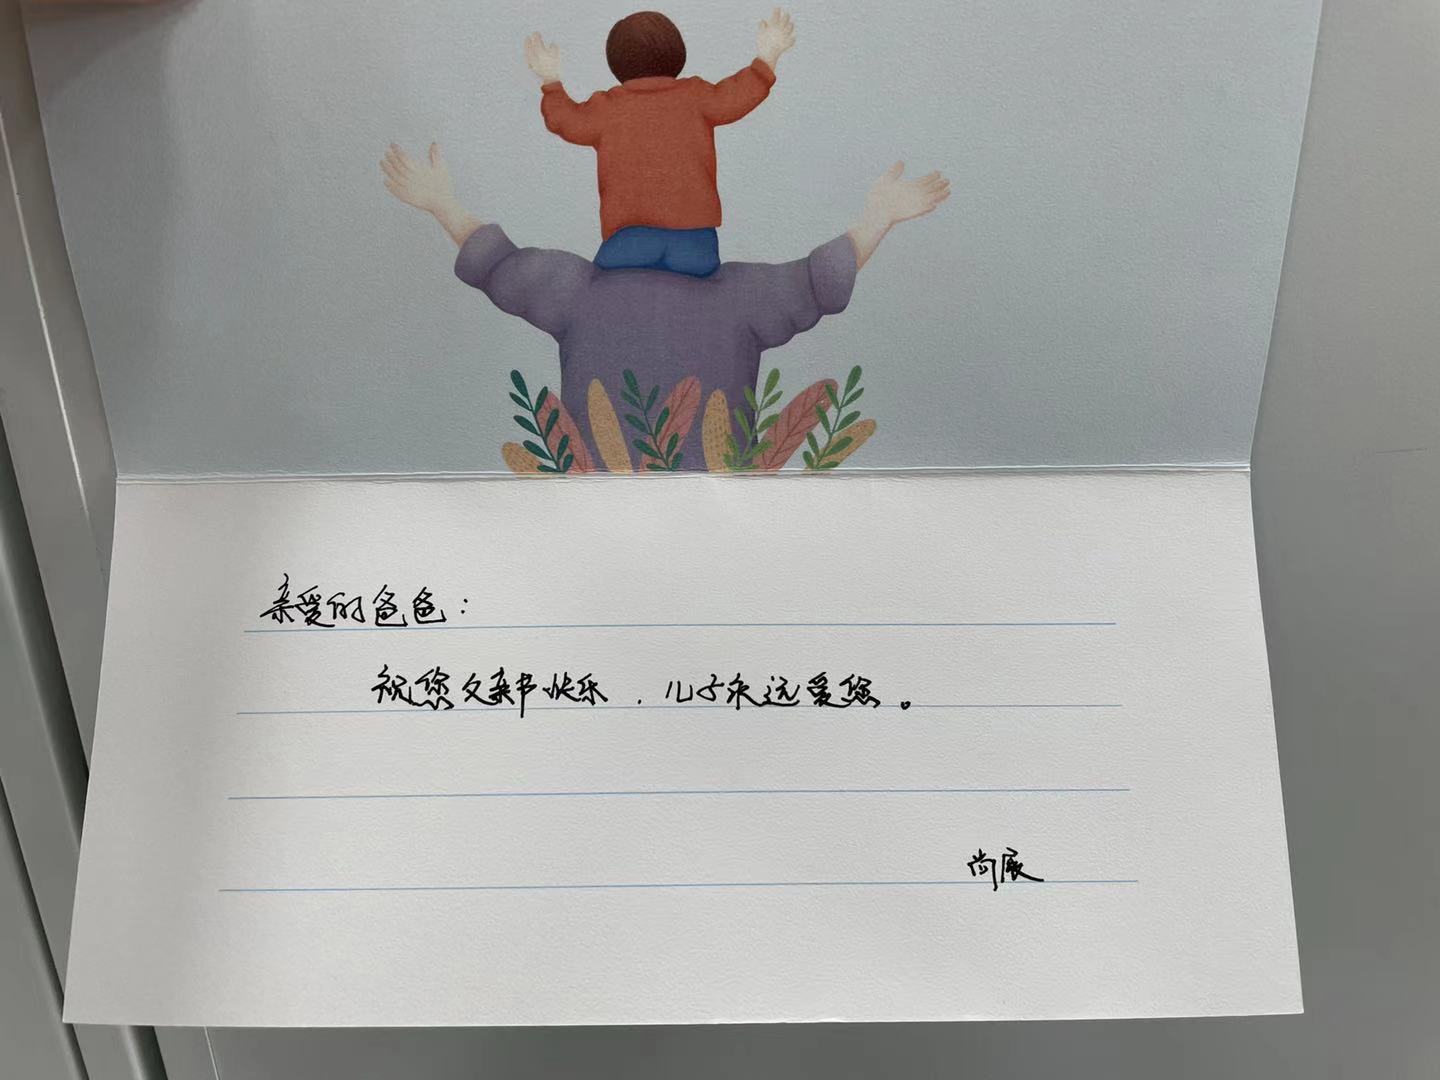 亲爱的爸爸:
祝您父亲节快乐,儿子永远爱您。
尚展